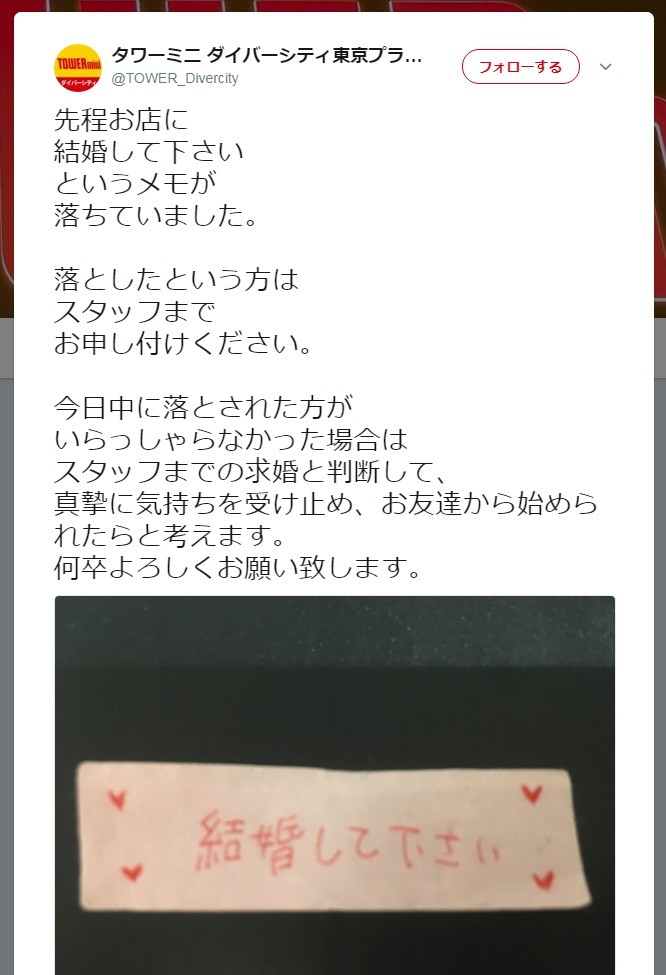 TOWERmini
ダイバーシティ
タワーミニ ダイバーシティ東京プラ...
@TOWER_Divercity
フォローする
先程お店に
結婚して下さい
というメモが
落ちていました。
落としたという方は
スタッフまで
お申し付けください。
今日中に落とされた方が
いらっしゃらなかった場合は
スタッフまでの求婚と判断して、
真摯に気持ちを受け止め、お友達から始めら
れたらと考えます。
何卒よろしくお願い致します。
結婚して下さい